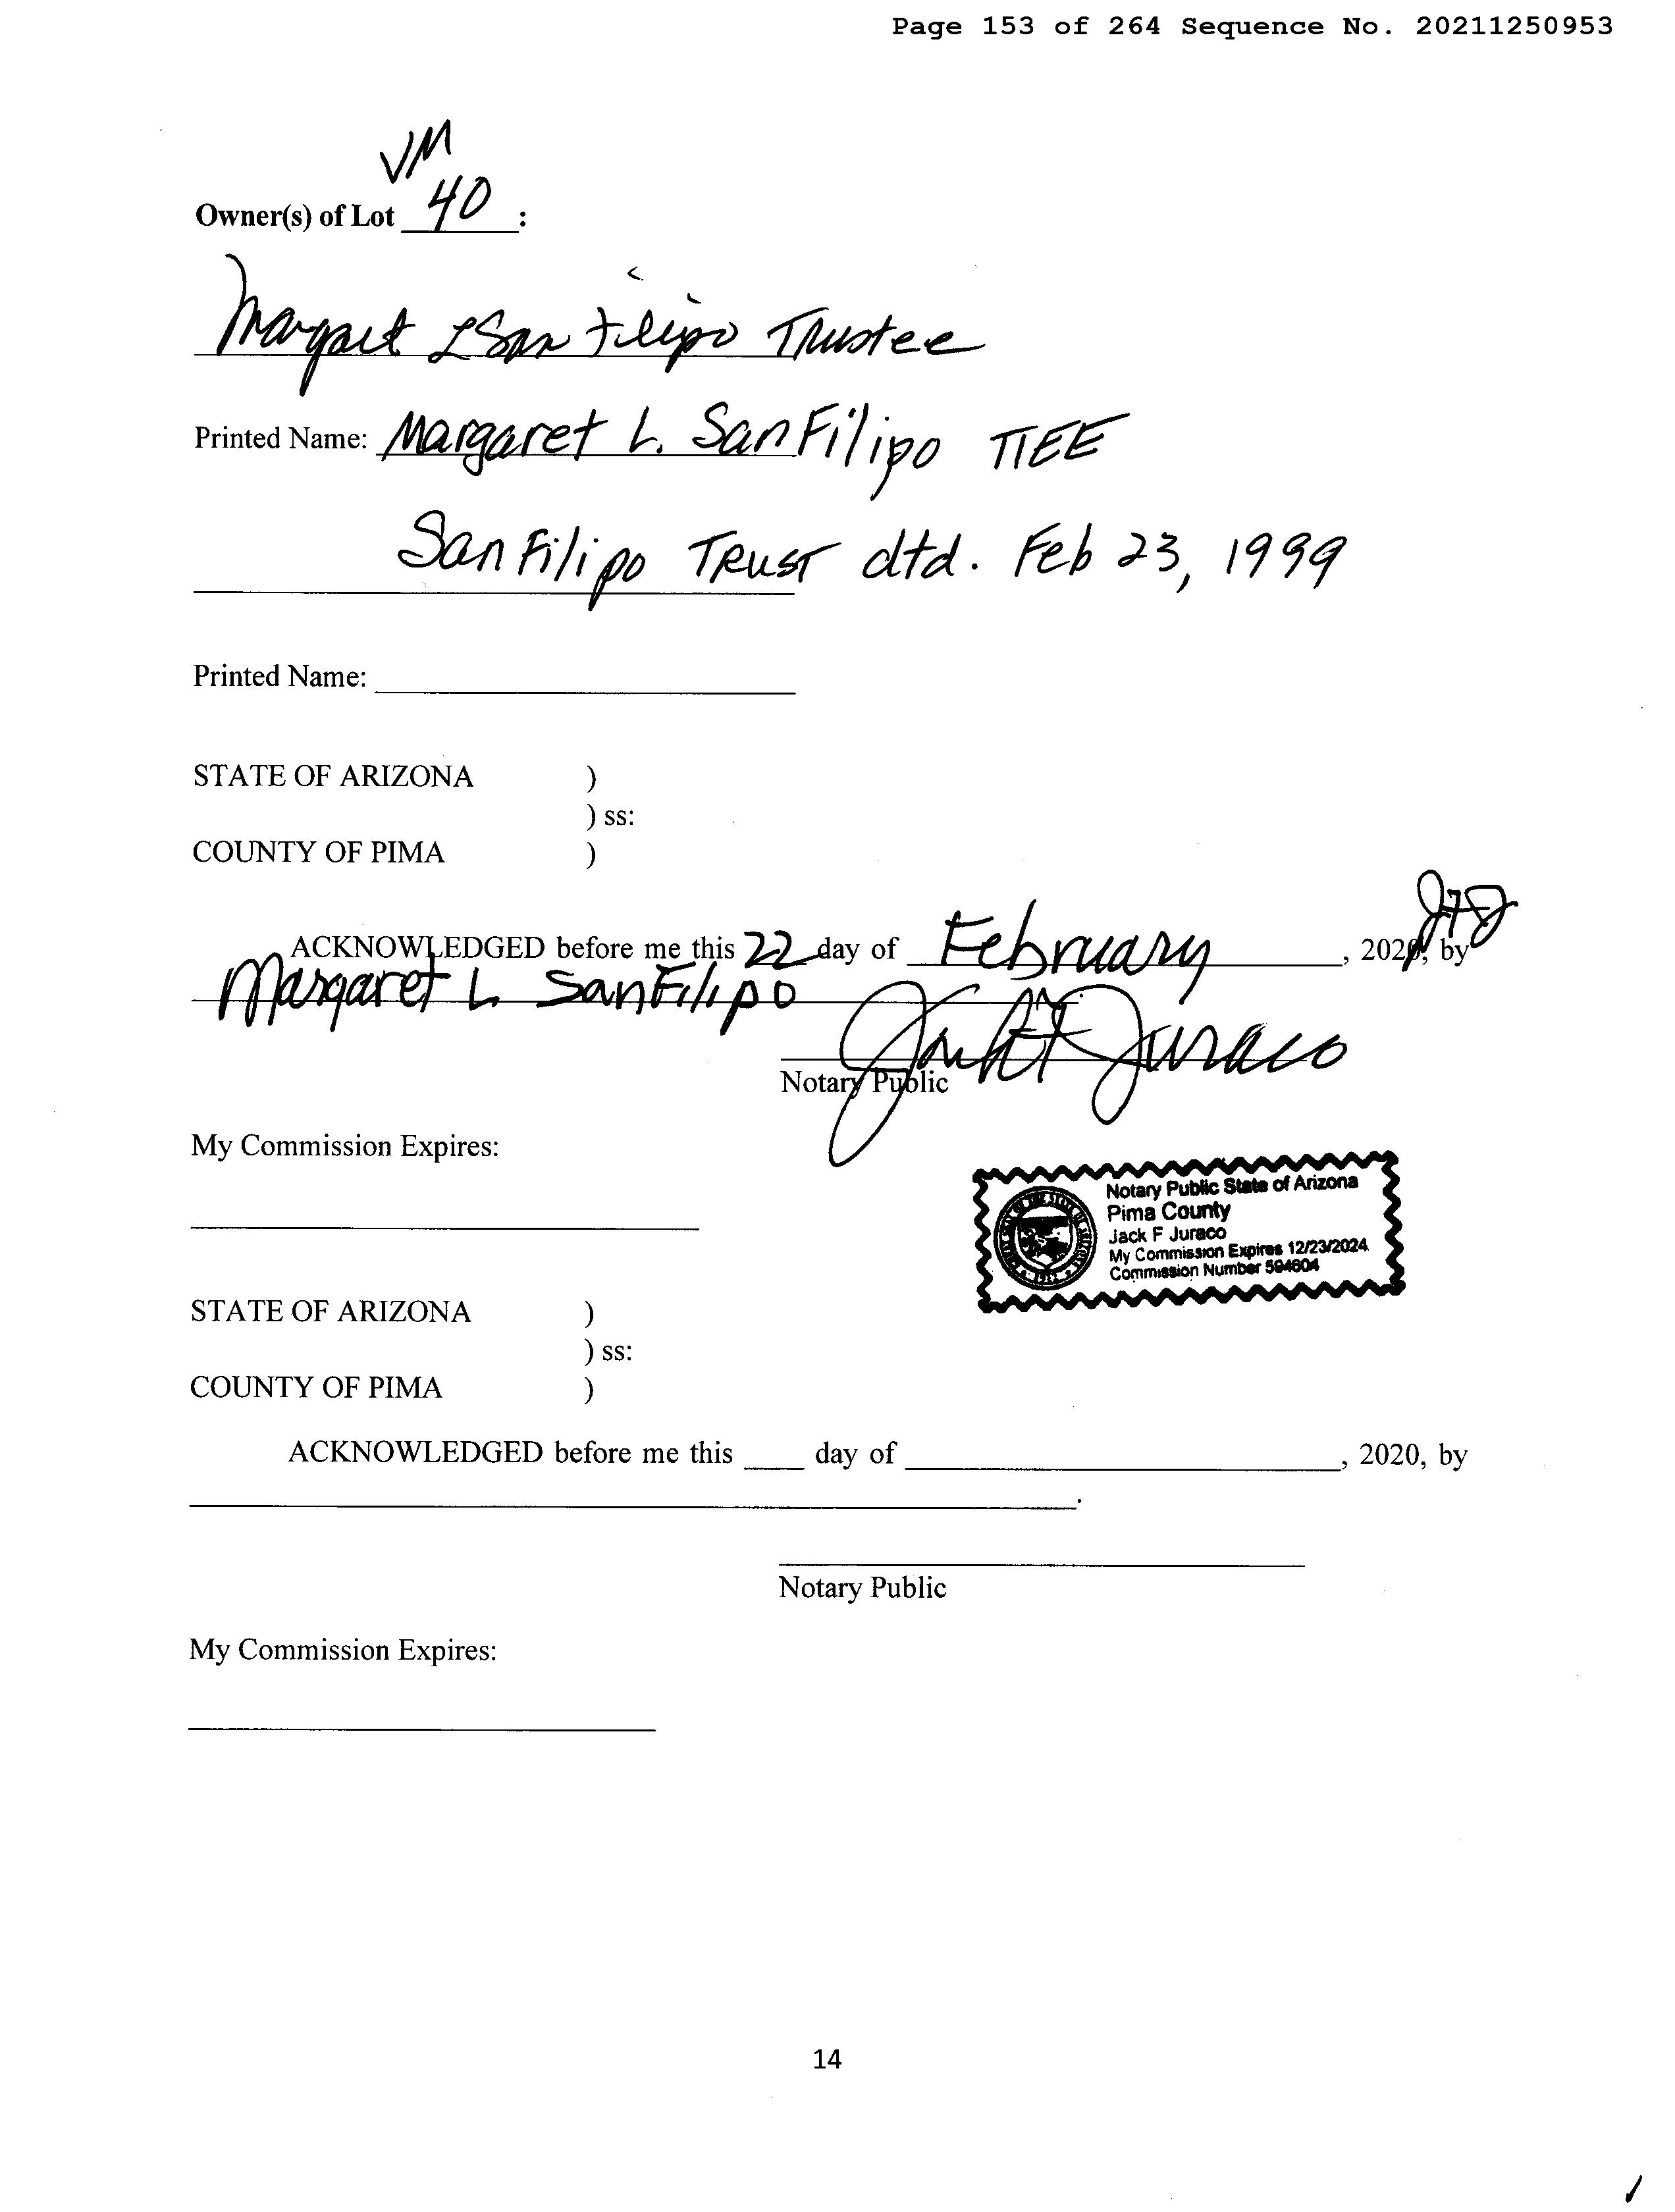 Page 153 of 264 Sequence No. 20211250953
VM
Owner(s) of Lot 40 :
Margaret L San Filipo Trustee
Printed Name: Margaret L. SanFilipo TTEE
SanFilipo TRUST dtd. Feb 23, 1999
Printed Name:
STATE OF ARIZONA )
) ss:
COUNTY OF PIMA )
JFJ
ACKNOWLEDGED before me this 22 day of February, 2021, by
Margaret L SanFilipo
Jack F Juraco
Notary Public
My Commission Expires:
Notary Public State of Arizona
Pima County
Jack F Juraco
My Commission Expires 12/23/2024
Commission Number 594604
STATE OF ARIZONA )
) ss:
COUNTY OF PIMA )
ACKNOWLEDGED before me this ____ day of ____, 2020, by
.
Notary Public
My Commission Expires:
14